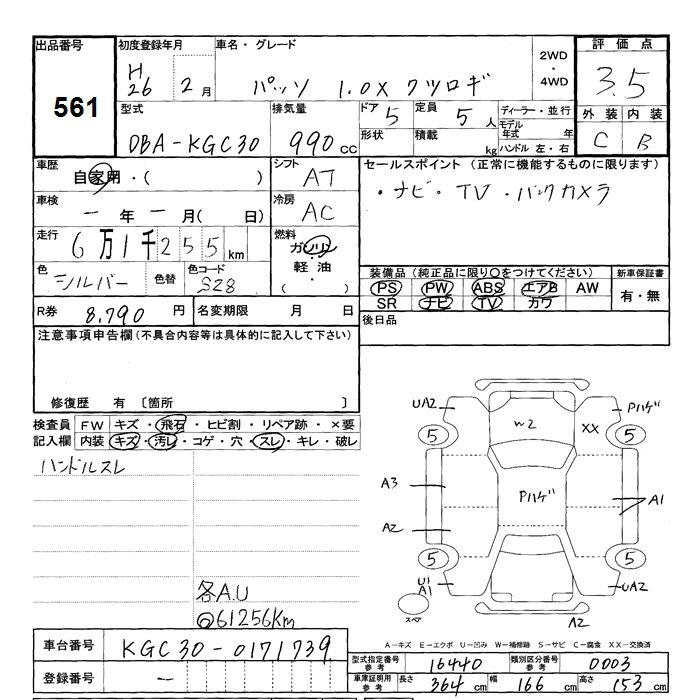 出品番号
561
初度登録年月
H26 2月
車名・グレード
パッソ 1.0X クツロギ
2WD
・
4WD
評価点
3.5
外装 内装
C B
型式
DBA-KGC30
排気量
990cc
ドア 5
定員 5人
形状
積載 kg
ディーラー・並行
モデル年式 年
ハンドル 左・右
車歴
自家用・( )
シフト
AT
車検
一年一月( 日)
冷房
AC
走行
6万1千255km
燃料
ガソリン
軽油
( ・ )
色
シルバー
色替
色コード
S28
R券 8.790円
名変期限 月 日
セールスポイント (正常に機能するものに限ります)
・ナビ・TV・バックカメラ
装備品 (純正品に限り○をつけてください)
PS PW ABS エアB AW
SR ナビ TV カワ
新車保証書
有・無
後日品
注意事項申告欄(不具合内容等は具体的に記入して下さい)
修復歴 有 〔箇所 〕
検査員記入欄
FW キズ・飛石・ヒビ割・リペア跡・×要
内装 キズ・汚レ・コゲ・穴・スレ・キレ・破レ
ハンドルスレ
各A.U
@61256Km
UA2
Pハゲ
〜2
XX
5
5
A3
Pハゲ
A1
A2
5
5
U1
A1
UA2
スペア
A2
A-キズ E-エクボ U-凹み W-補修跡 S-サビ C-腐食 XX-交換済
車台番号 KGC30-0171739
登録番号 -
型式指定番号参考 16440
類別区分番号参考 0003
車庫証明用参考 長さ 364cm 幅 166cm 高さ 153cm